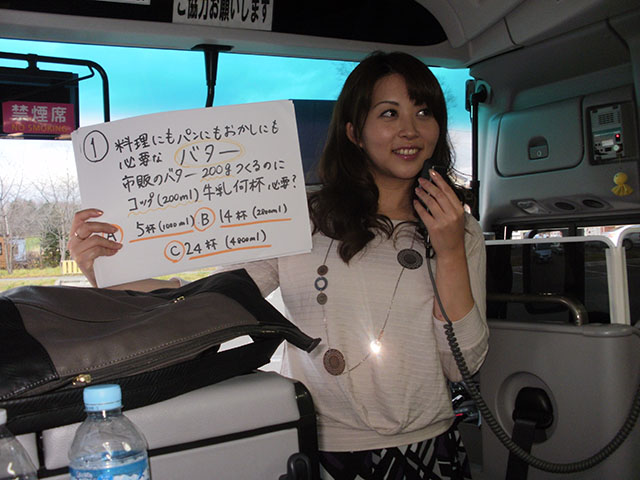 ご協力お願いします
禁煙席
SMOKING
① 料理にもパンにもおかしにも
必要な バター
市販のバター 200gつくるのに
コップ(200ml) 牛乳何杯必要?
A 5杯(1000ml) B 14杯(2800ml)
C 24杯(4800ml)